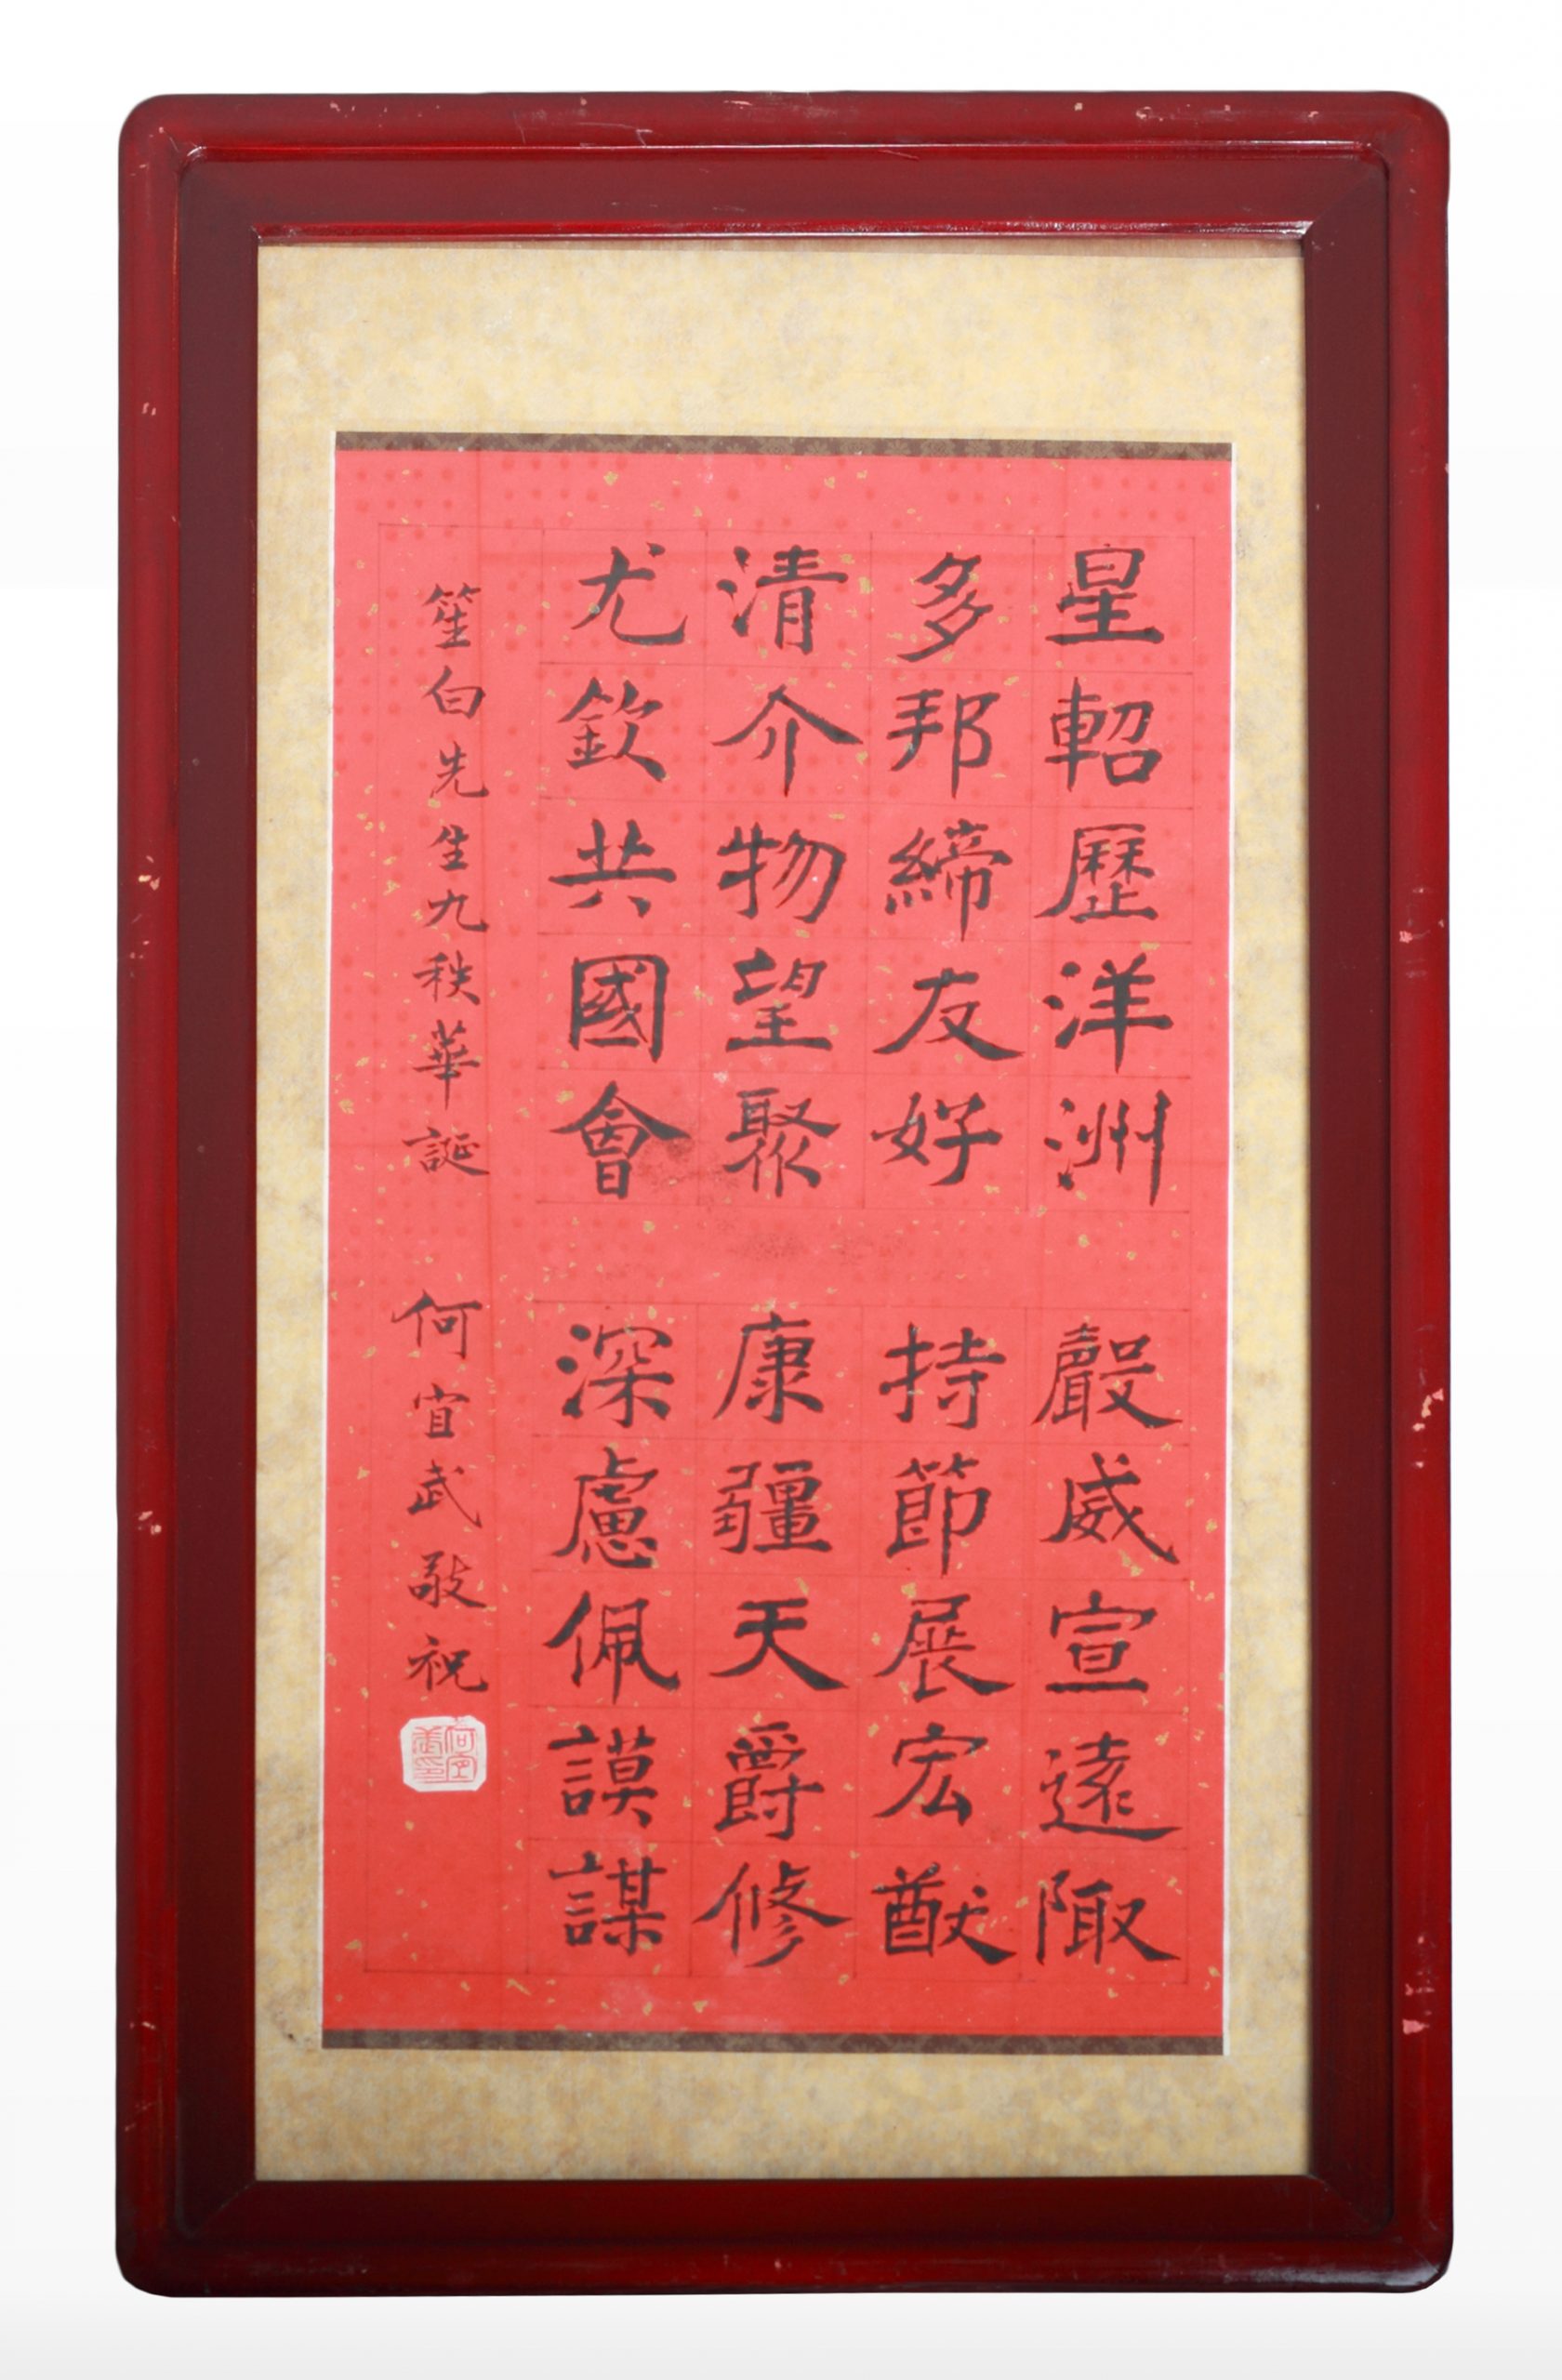 星軺歷洋洲 嚴威宣遠陬
多邦締友好 持節展宏猷
清介物望聚 康疆天爵修
尤欽共國會 深慮佩謨謀
笙白先生九秩華誕 何宜武敬祝
何宜武印